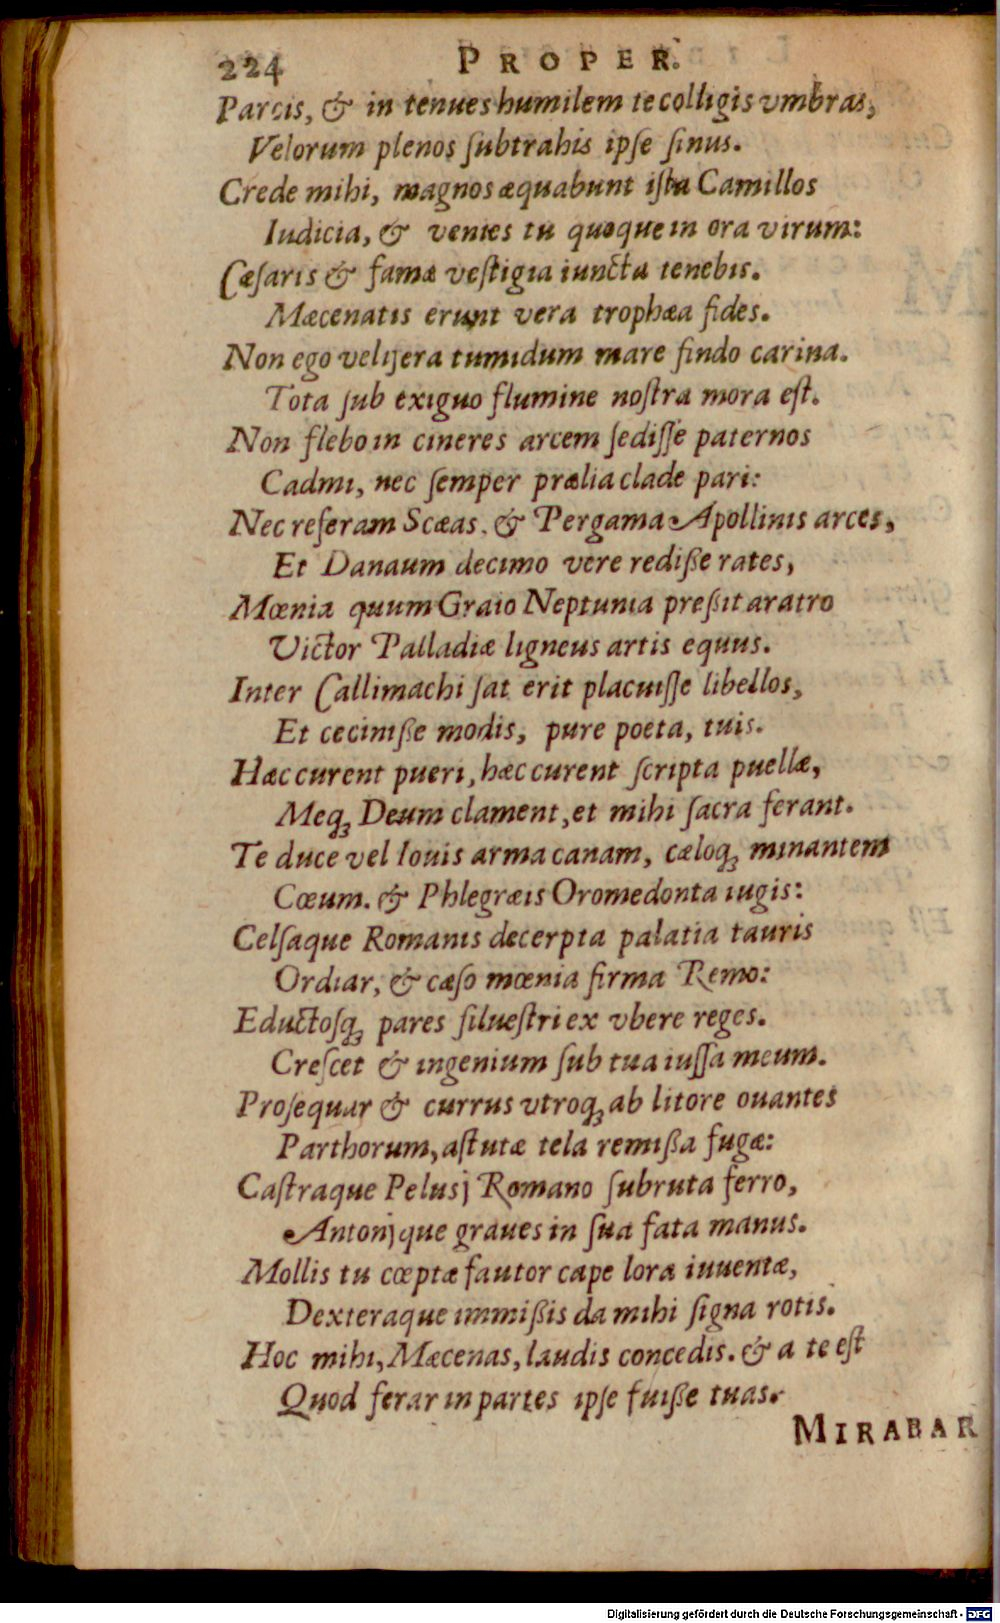 224 PROPER.
Parcis, & in tenues humilem te colligis vmbras,
Velorum plenos ſubtrahis ipſe ſinus.
Crede mihi, magnos æquabunt iſta Camillos
Iudicia, & venies tu quoque in ora virum:
Cæſaris & famæ veſtigia iuncta tenebis.
Mæcenatis erunt vera trophæa fides.
Non ego velijera tumidum mare findo carina.
Tota ſub exiguo flumine noſtra mora eſt.
Non flebo in cineres arcem ſediſſe paternos
Cadmi, nec ſemper prælia clade pari:
Nec referam Scæas, & Pergama Apollinis arces,
Et Danaum decimo vere rediße rates,
Mœnia quum Graio Neptunia preßit aratro
Victor Palladiæ ligneus artis equus.
Inter Callimachi ſat erit placuiſſe libellos,
Et ceciniße modis, pure poeta, tuis.
Hæc curent pueri, hæc curent ſcripta puellæ,
Meqꝫ Deum clament, et mihi ſacra ferant.
Te duce vel Iouis arma canam, cæloqꝫ minantem
Cœum. & Phlegræis Oromedonta iugis:
Celſaque Romanis decerpta palatia tauris
Ordiar, & cæſo mœnia firma Remo:
Eductoſqꝫ pares ſilueſtri ex vbere reges.
Creſcet & ingenium ſub tua iuſſa meum.
Proſequar & currus vtroqꝫ ab litore ouantes
Parthorum, aſtutæ tela remißa fugæ:
Caſtraque Peluſj Romano ſubruta ferro,
Antonjque graues in ſua fata manus.
Mollis tu cœptæ fautor cape lora iuuentæ,
Dexteraque immißis da mihi ſigna rotis.
Hoc mihi, Mæcenas, laudis concedis. & a te eſt
Quod ferar in partes ipſe fuiße tuas.
MIRABAR
Digitalisierung gefördert durch die Deutsche Forschungsgemeinschaft - DFG